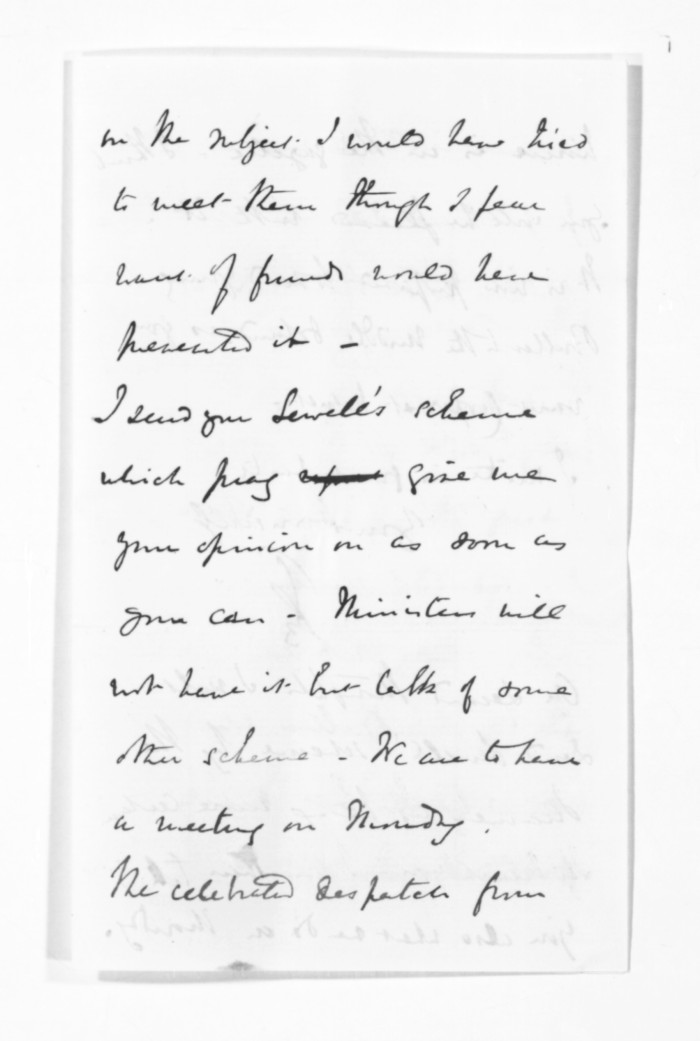 on the subject. I would have tried
to meet them though I fear
want of funds would have
prevented it -
I send you Sewell's scheme
which pray give me
your opinion on as soon as
you can - Ministers will
not have it but talk of some
other scheme - We are to have
a meeting on Thursday.
The celebrated despatch from